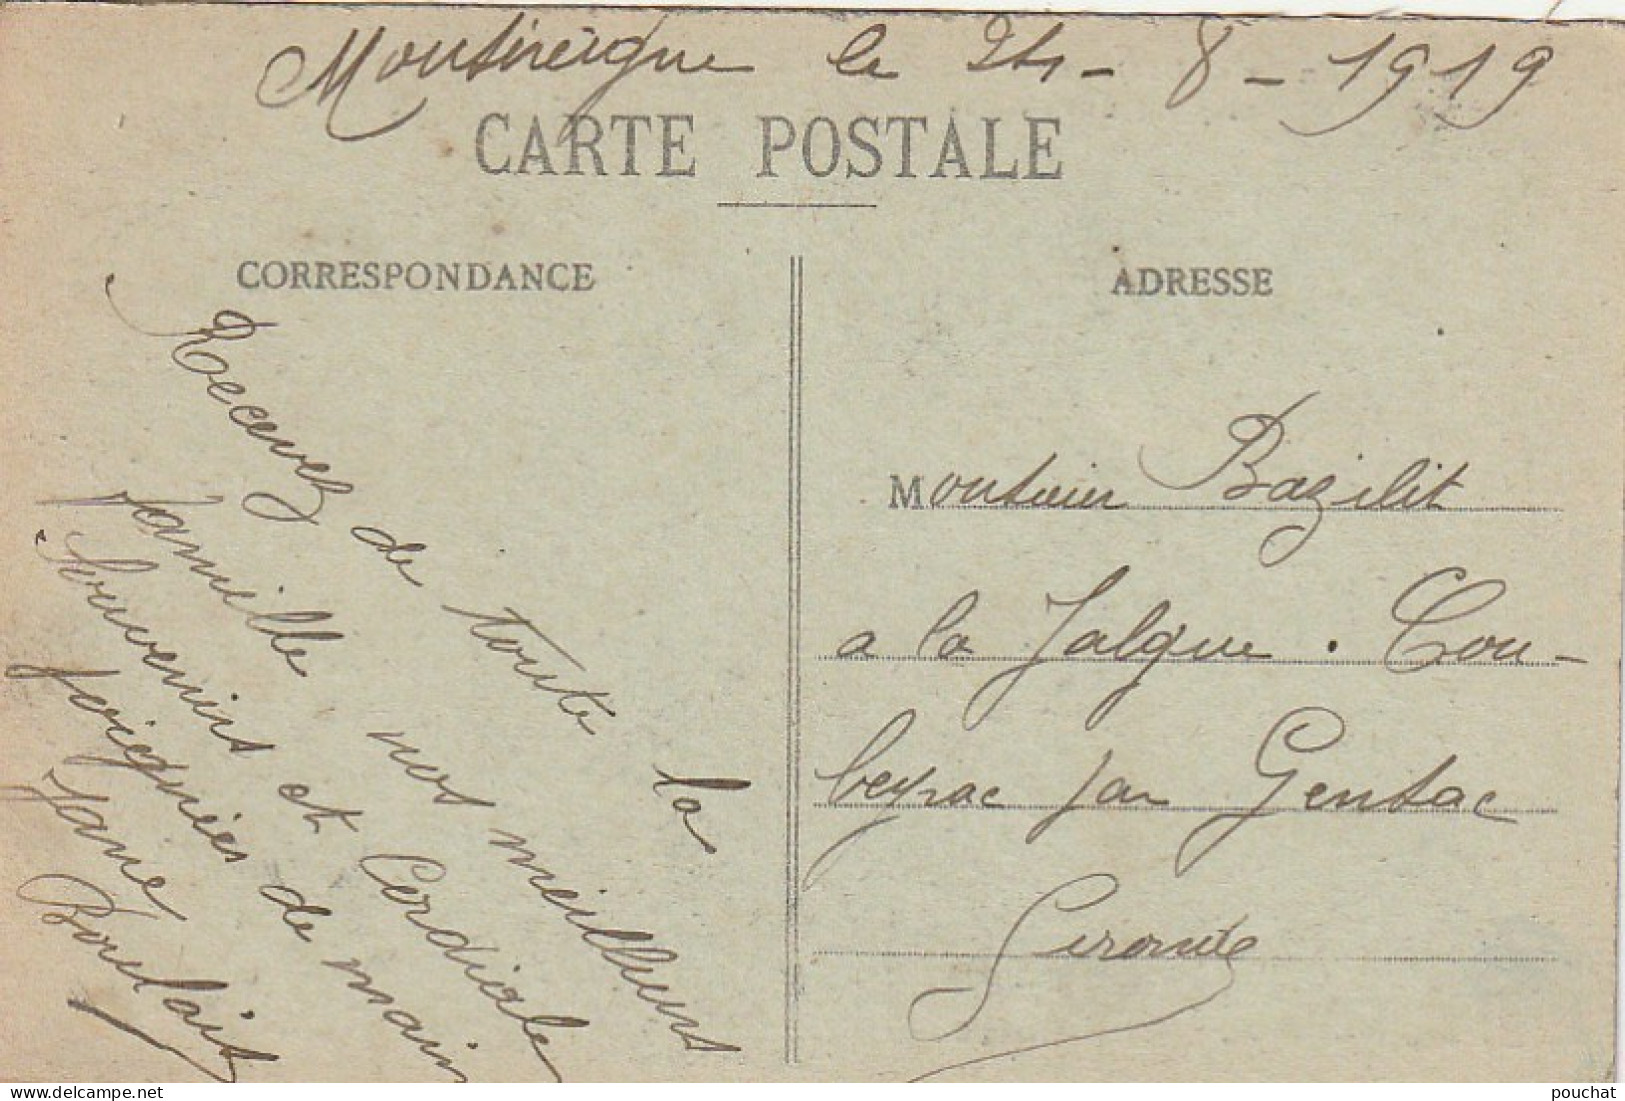 Monsireigne le 24-8-1919
CARTE POSTALE
CORRESPONDANCE
Recevez de toute la
famille nos meilleurs
Souvenirs et Cordiale
poignées de main
Jane
Boulait
ADRESSE
Monsieur Bazilit
a la Jalgue. Cou-
beyrac par Gensac
Gironde
pouchat